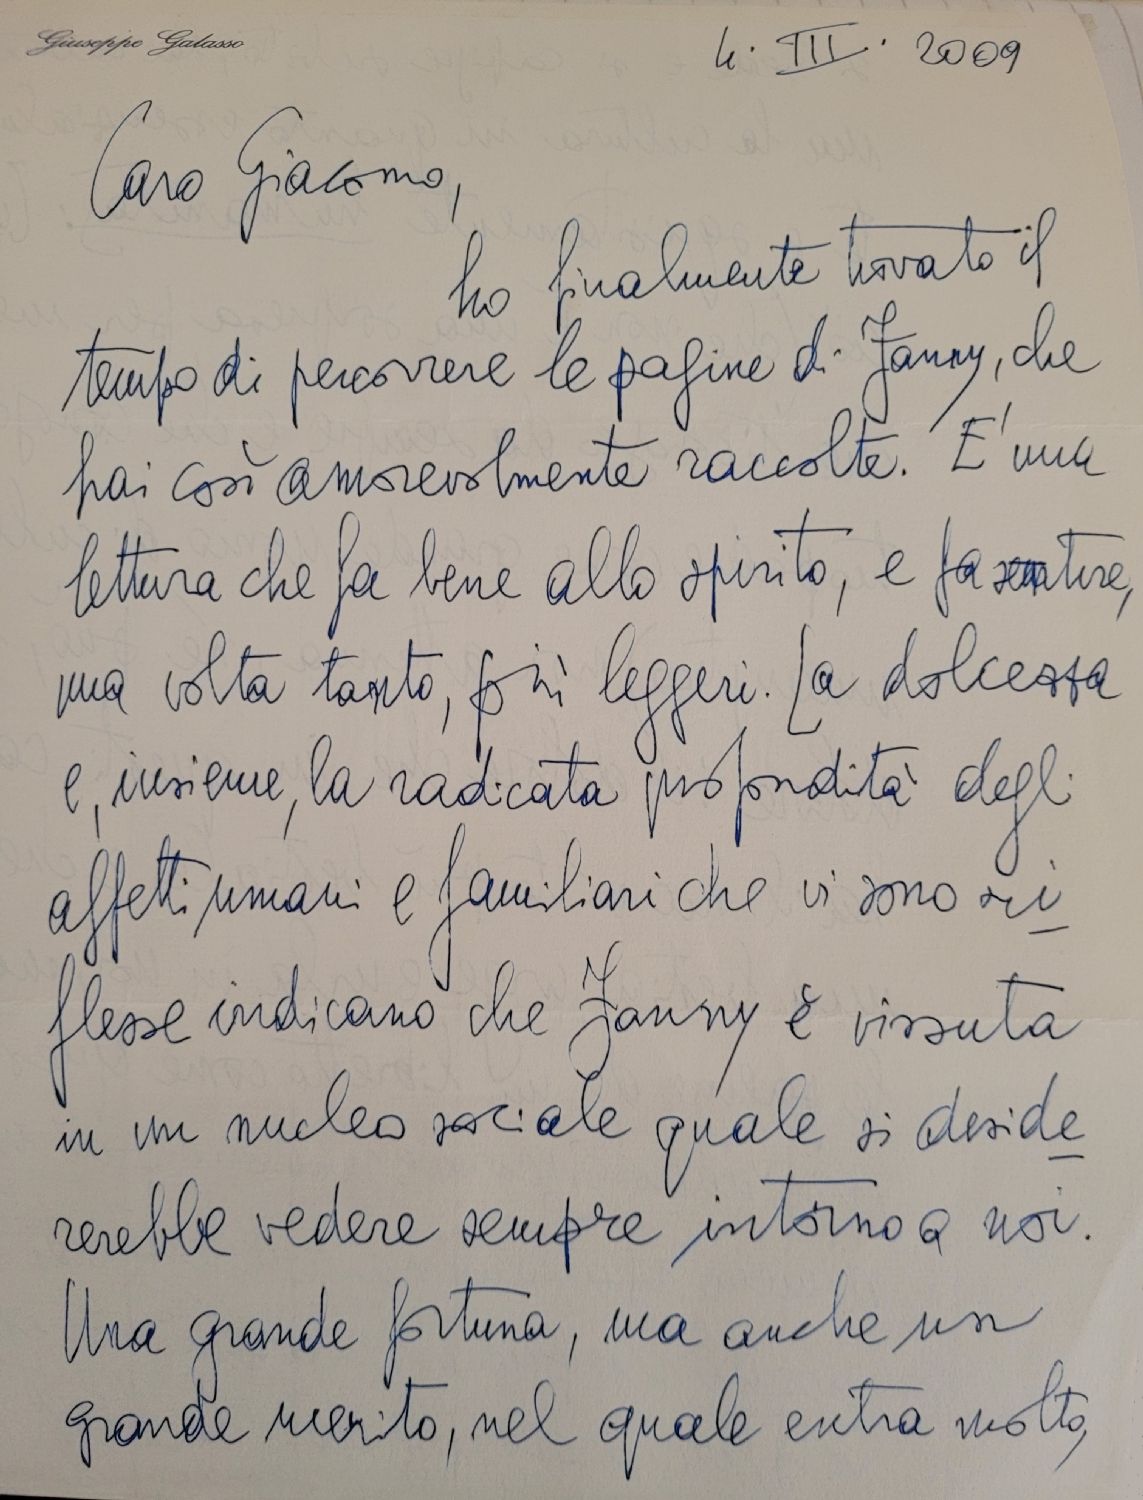 Giuseppe Galasso
4. III. 2009
Caro Giacomo,
ho finalmente trovato il
tempo di percorrere le pagine di Fanny, che
hai così amorevolmente raccolte. E' una
lettura che fa bene allo spirito, e fa sentire,
una volta tanto, più leggeri. La dolcezza
e, insieme, la radicata profondità degli
affetti umani e familiari che vi sono ri
flesse indicano che Fanny è vissuta
in un nucleo sociale quale si deside
rerebbe vedere sempre intorno a noi.
Una grande fortuna, ma anche un
grande merito, nel quale entra molto,